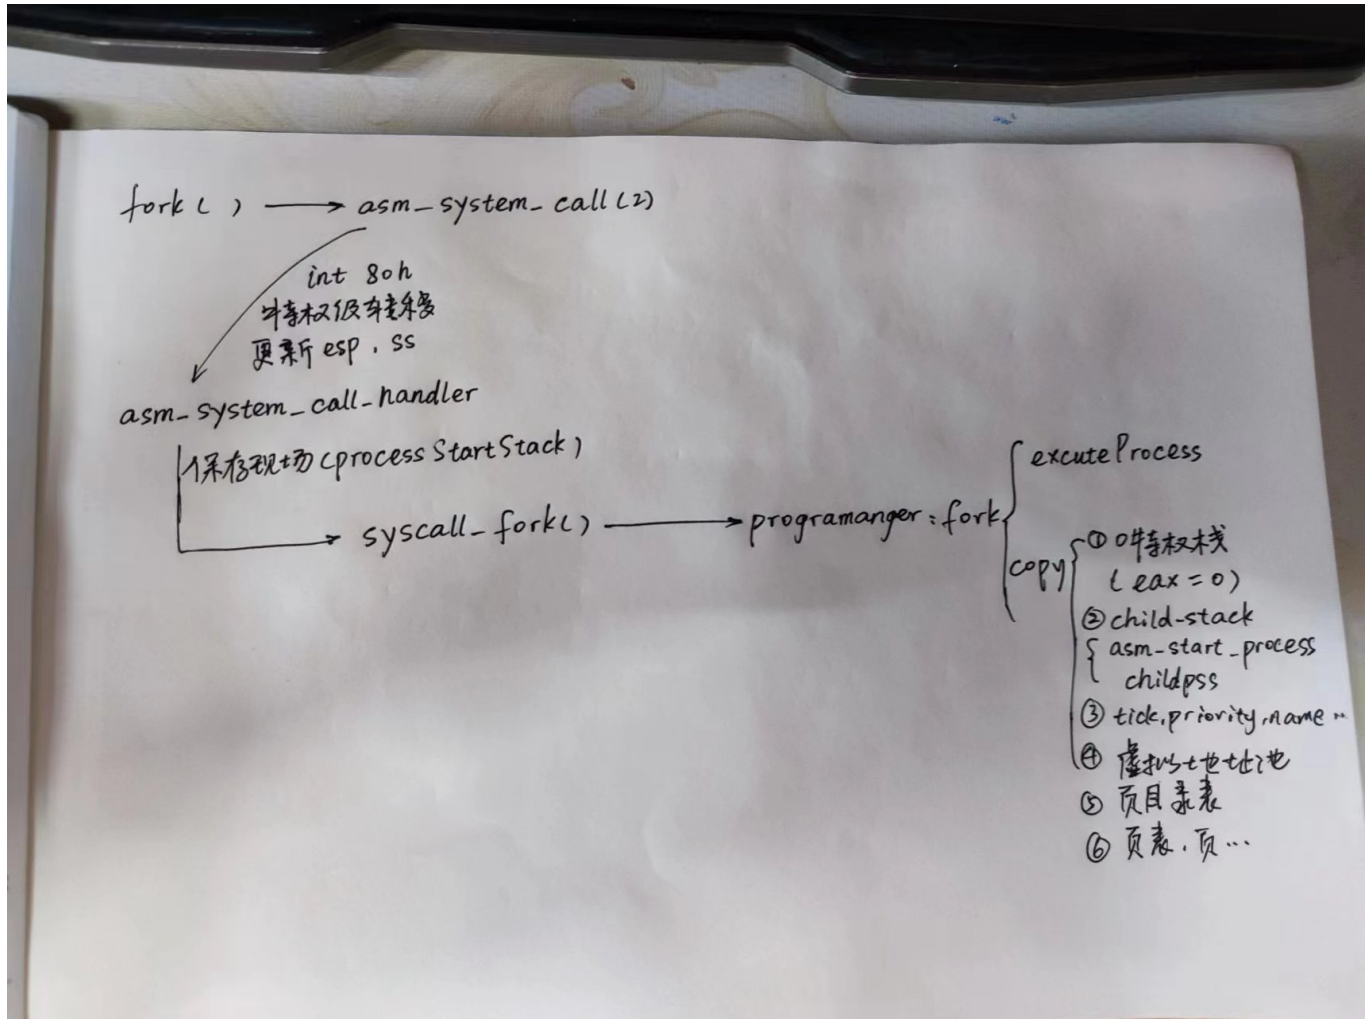 fork( ) → asm_system_call(2)
int 80h
特权级转移
更新esp, ss
asm_system_call_handler
保存现场(processStartStack)
syscall_fork() → programanger:fork
excuteProcess
copy
① 0特权栈
(eax=0)
② child-stack
asm-start_process
childpss
③ tick,priority,name…
④ 虚拟地址池
⑤ 页目录表
⑥ 页表, 页…